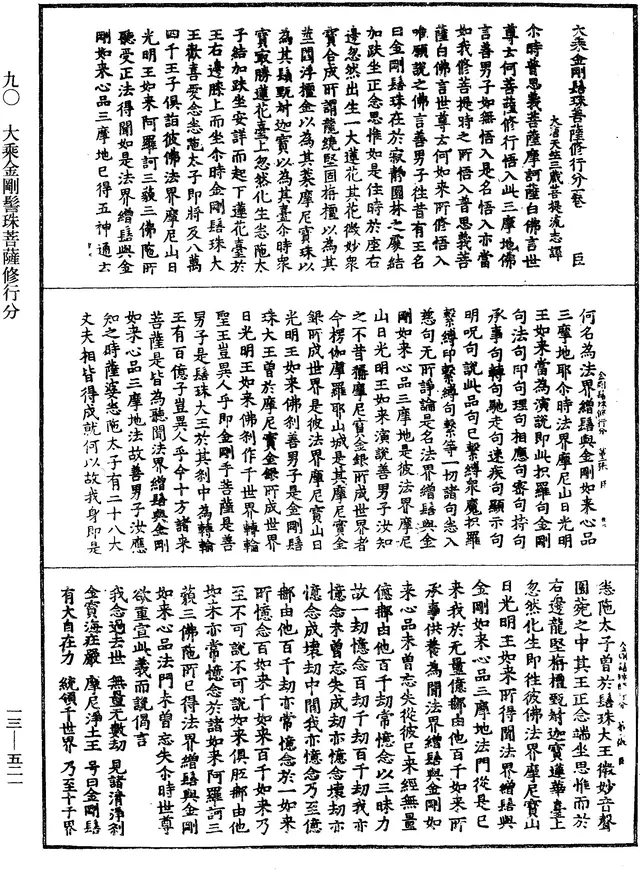 大乘金剛髻珠菩薩修行分一卷 臣
大唐天竺三藏菩提流志譯
尒時普思義菩薩摩訶薩白佛言世
尊云何菩薩修行悟入此三摩地佛
言善男子如無悟入是名悟入亦當
如我修菩提時之所悟入普思義菩
薩白佛言世尊云何如來所修悟入
唯願說之佛言善男子往昔有王名
曰金剛髻珠在於寂靜園林之處結
加趺坐正念思惟如是住時於座右
邊忽然出生一大蓮花其花微妙衆
寶合成所謂龍繞堅固栴檀以為其
莖閻浮檀金以為其葉摩尼寶珠以
為其鬚甄叔迦寶以為其臺尒時衆
寶最勝蓮花臺上忽然化生悉陁太
子結加趺坐安詳而起下蓮花臺於
王右邊膝上而坐尒時金剛髻珠大
王歡喜愛念悉陁太子即將及八萬
四千王子俱詣彼佛法界摩尼山日
光明王如來阿羅訶三藐三佛陁所
聽受正法得聞如是法界繒髻與金
剛如來心品三摩地已得五神通六
何名為法界繒髻與金剛如來心品
三摩地耶尒時法界摩尼山日光明
王如來當為演說即此拟羅句金剛
句法句印句理句相應句密句持句
承事句轉句馳走句速疾句顯示句
明呪句說此品句已繫縛衆魔拟羅
繫縛印繫縛句繫等一切諸句悉入
慈句無所諍論是名法界繒髻與金
剛如來心品三摩地是彼法界摩尼
山日光明王如來演說善男子汝知
之不昔播摩尼寶金銀所成世界者
今楞伽摩羅耶山城是其摩尼寶金
銀所成世界是彼法界摩尼寶山日
光明王如來佛剎善男子是金剛髻
珠大王曾於摩尼寶金銀所成世界
日光明王如來佛剎作千世界轉輪
聖王豈異人乎即金剛手菩薩是善
男子是髻珠大王於其剎中為轉輪
王有百億子豈異人乎今十方諸來
菩薩是皆為聽聞法界繒髻與金剛
如來心品三摩地法故善男子汝應
知之時薩婆悉陁太子有二十八大
丈夫相皆得成就何以故我身即是
悉陁太子曾於髻珠大王微妙音聲
園苑之中其王正念端坐思惟而於
右邊龍堅栴檀甄叔迦寶蓮華臺上
忽然化生即往彼佛法界摩尼寶山
日光明王如來所得聞法界繒髻與
金剛如來心品三摩地法門從是已
來我於無量億那由他百千如來所
承事供養為聞法界繒髻與金剛如
來心品未曾忘失從彼已來經無量
億那由他百千劫常憶念以三昧力
故一劫憶念百劫千劫百千劫我亦
憶念未曾忘失成劫亦憶念壞劫亦
憶念成壞劫中間我亦憶念乃至億
那由他百千劫亦常憶念於一如來
所憶念百如來千如來百千如來乃
至不可說不可說如來俱胝那由他
如來亦常憶念於諸如來阿羅訶三
藐三佛陁所已得法界繒髻與金剛
如來心品法門未曾忘失尒時世尊
欲重宣此義而說偈言
我念過去世 無量無數劫 見諸清淨剎
金寶海莊嚴 摩尼淨土王 号曰金剛髻
有大自在力 統領千世界 乃至十子界
九〇 大乘金剛髻珠菩薩修行分
一三—五二一